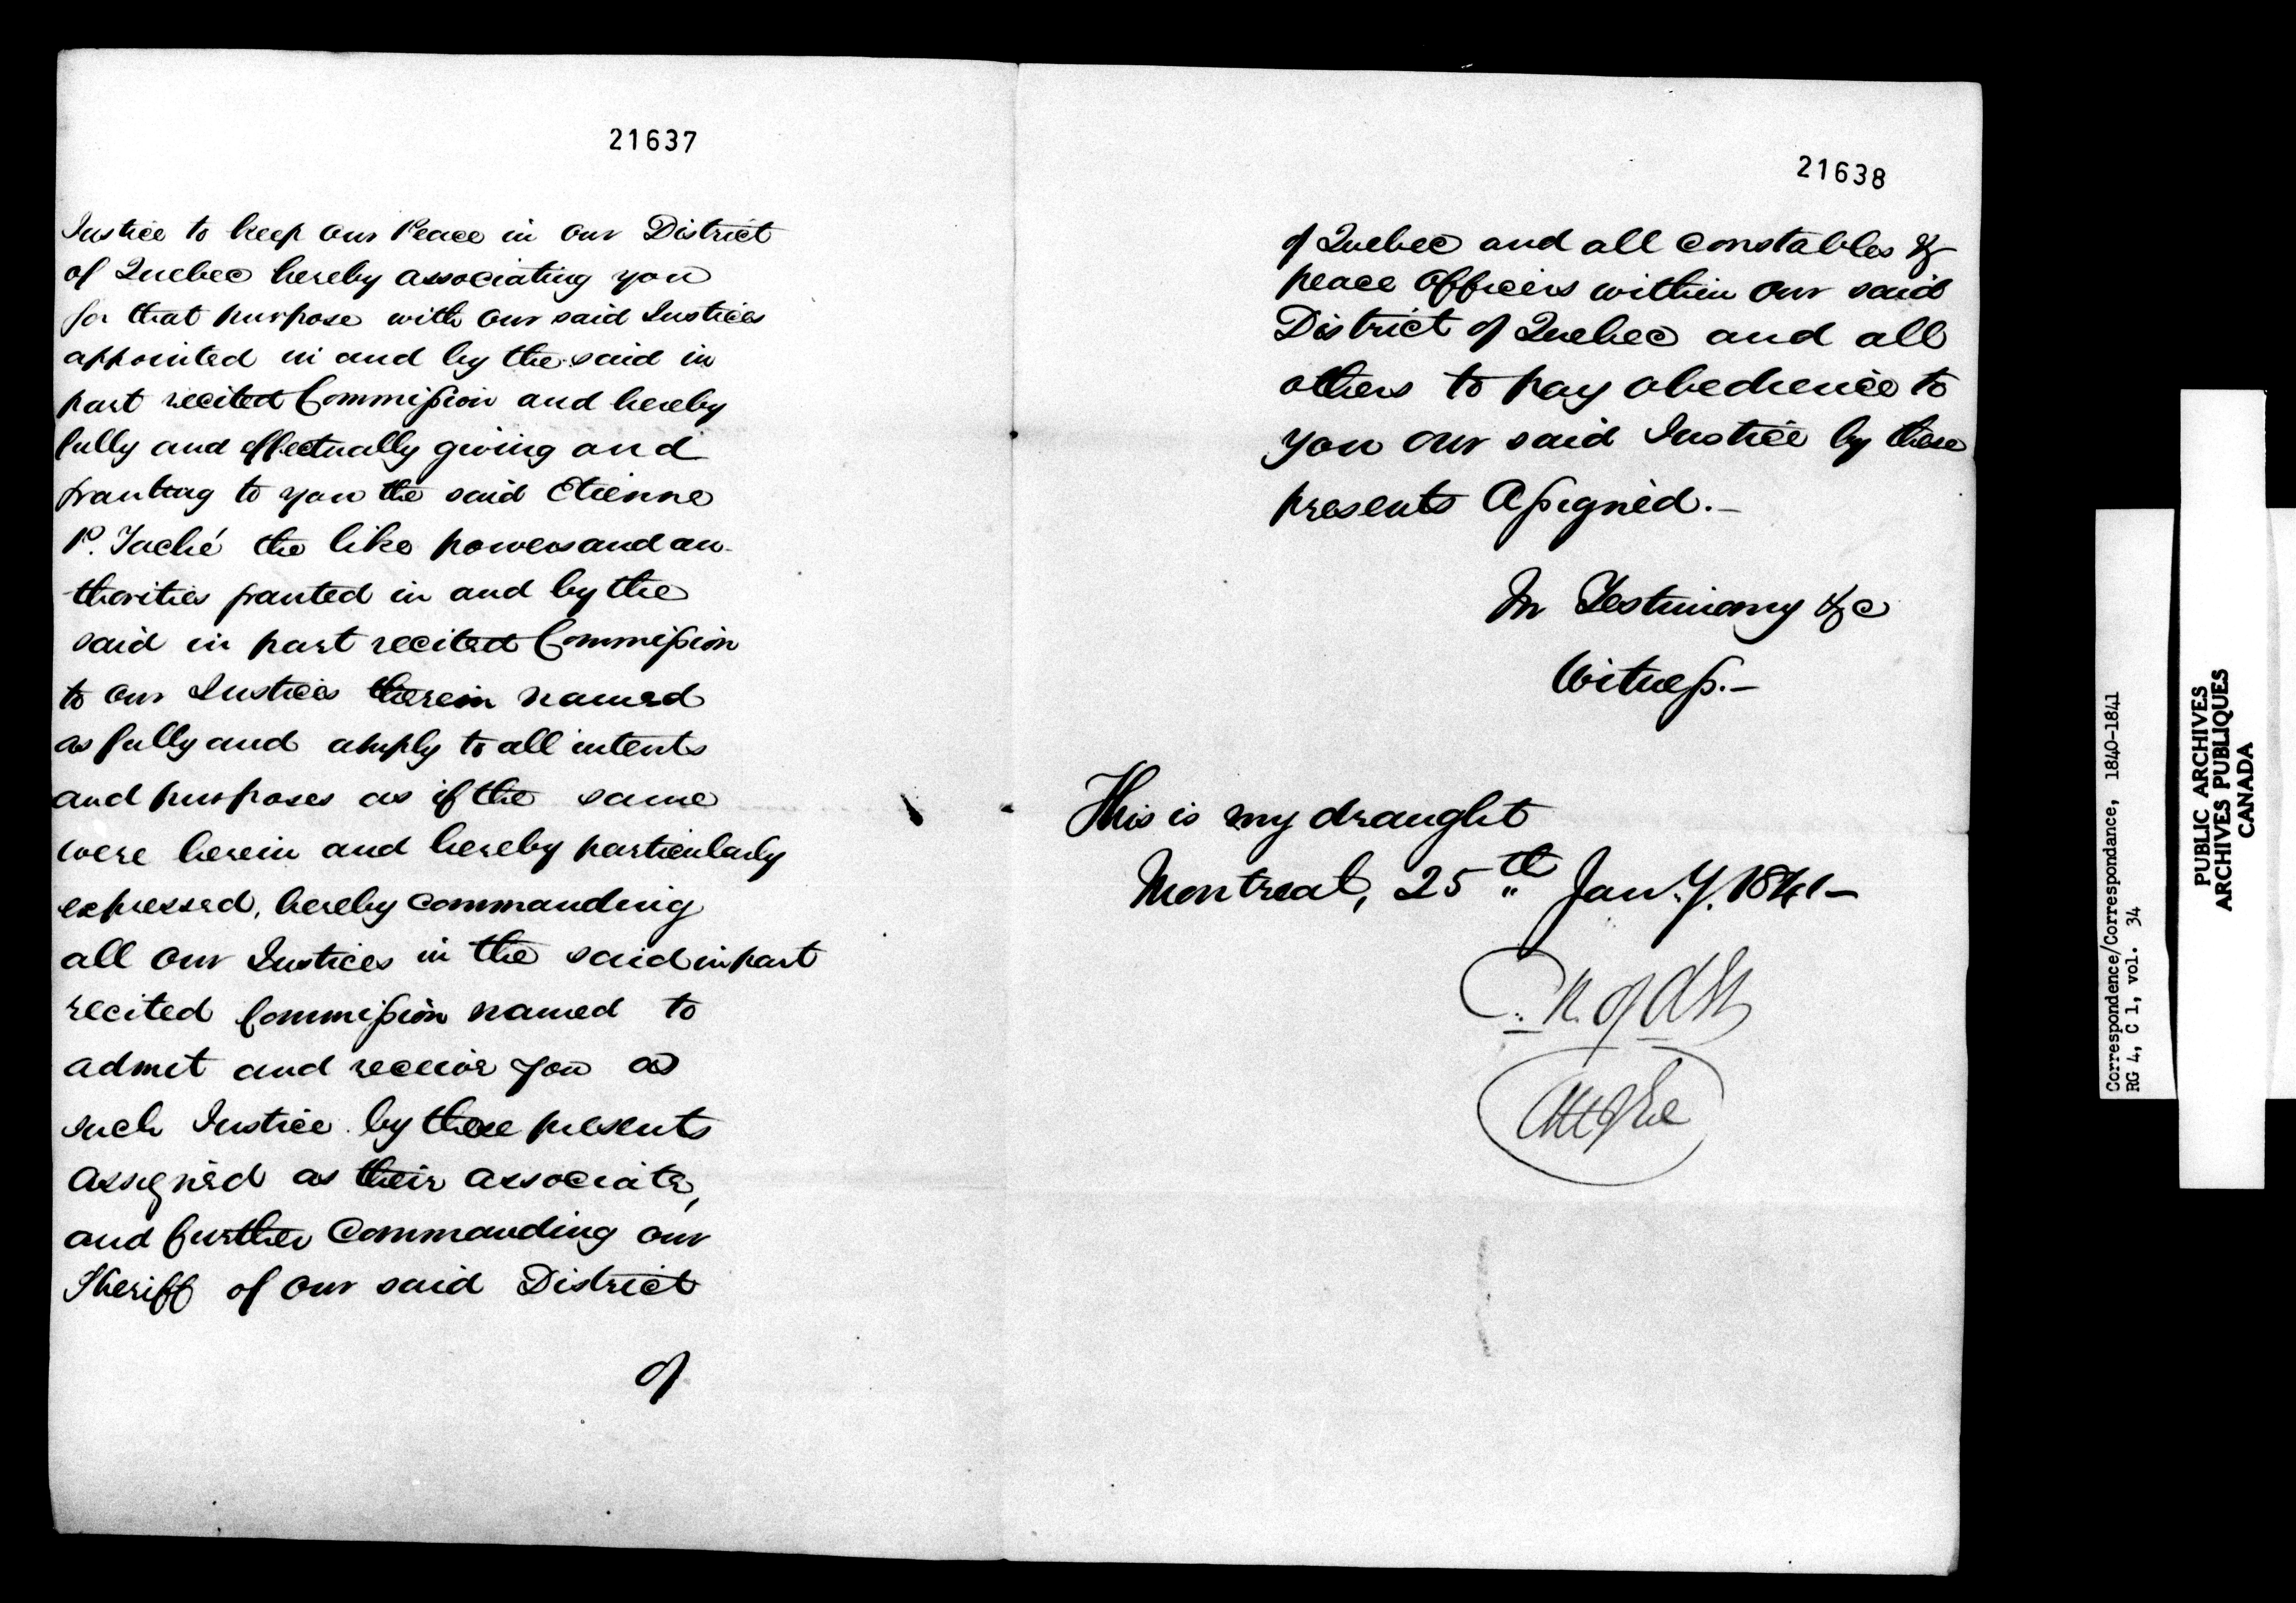 21637
Justice to keep our Peace in our District
of Quebec hereby associating you
for that purpose with our said Justices
appointed in and by the said in
part recited Commission and hereby
fully and effectually giving and
granting to you the said Etienne
P. Taché the like powers and au-
thorities granted in and by the
said in part recited Commission
to our Justices therein named
as fully and amply to all intents
and purposes as if the same
were herein and hereby particularly
expressed, hereby commanding
all our Justices in the said in part
recited Commission named to
admit and receive you as
such Justice by these presents
assigned as their associate,
and further Commanding our
Sheriff of our said District
of
21638
of Quebec and all constables &
peace officers within our said
District of Quebec and all
others to pay obedience to
you our said Justice by these
presents Assigned.-
In Testimony &c
Witness.-
This is my draught
Montreal, 25th Jan.y. 1841-
Correspondence/Correspondance, 1840-1841
RG 4, C 1, vol. 34
PUBLIC ARCHIVES
ARCHIVES PUBLIQUES
CANADA